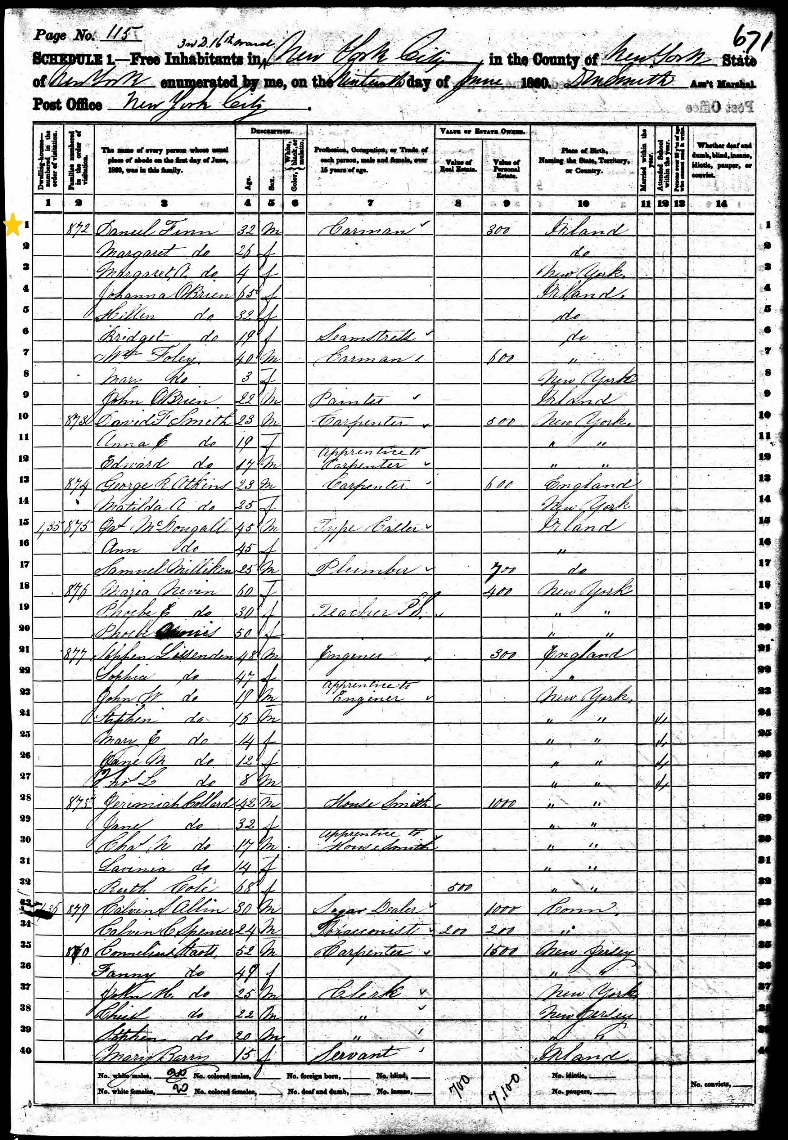 Page No. 115
671
3rd D. 16th Ward
SCHEDULE 1.—Free Inhabitants in New York City in the County of New York State
of New York enumerated by me, on the Nineteenth day of June 1860. Ass't Marshal.
Post Office New York City
Post Office
Dwelling-houses—numbered in the order of visitation. Families numbered in the order of visitation. The name of every person whose usual place of abode on the first day of June, 1860, was in this family. DESCRIPTION. Age. Sex. Color, White, black, or mulatto. Profession, Occupation, or Trade of each person, male and female, over 15 years of age. VALUE OF ESTATE OWNED. Value of Real Estate. Value of Personal Estate. Place of Birth, Naming the State, Territory, or Country. Married within the year. Attended School within the year. Whether deaf and dumb, blind, insane, idiotic, pauper, or convict.
1 2 3 4 5 6 7 8 9 10 11 12 13 14
1 872 Daniel Finn 32 M Carman 300 Irland 1
2 Margaret do 26 f do 2
3 Margaret A. do 4 f New York 3
4 Johanna O'Brien 65 f Irland. 4
5 do 32 f do 5
6 Bridget do 19 f Seamstress do 6
7 Wm Foley 40 M Carman 600 " 7
8 Mary do 3 f New York 8
9 John O'Brien 22 M Painter Irland 9
10 873 David F. Smith 23 M Carpenter 500 New York. 10
11 Anna E do 19 f " " 11
12 Edward do 17 M Apprentice to Carpenter " " 12
13 874 George R Atkins 23 M Carpenter 600 England 13
14 Matilda A do 25 f New York 14
15 1,35 875 McDougall 45 M Type Irland 15
16 Ann do 45 f " 16
17 Samuel Milliken 25 M Plumber 700 do 17
18 876 Maria Nevin 60 f 400 New York 18
19 Phoebe E do 30 f Teacher " " 19
20 Phoebe 50 f " " 20
21 877 Stephen 48 M Enginer 300 England 21
22 Sophia do 47 f " 22
23 John W do 18 M Apprentice to Enginer New York. 23
24 Stephen do 15 M " " 24
25 Mary E do 14 f " " 25
26 Jane M do 12 f " " 26
27 Thos L do 8 M " " 27
28 878 Jeremiah Collard 42 M House Smith 1000 " " 28
29 Jane do 32 f " " 29
30 Chas N do 17 M Apprentice to House Smith " " 30
31 Lavinia do 14 f " " 31
32 Ruth Cole 68 f 500 " " 32
33 879 Calvin S Allin 30 M Segar Dealer 1000 Conn. 33
34 Calvin C Spencer 24 M 200 200 " 34
35 880 Cornelius Staats 52 M Carpenter 1500 New Jersey 35
36 Fanny do 49 f " " 36
37 John H. do 25 M Clerk New York 37
38 do 22 M " New Jersey 38
39 Stephen do 20 M " " " 39
40 Mary Barry 15 f Servant Irland 40
No. white males, 20 No. colored males, No. foreign born, No. blind, No. idiotic,
No. white females, 20 No. colored females, No. deaf and dumb, No. insane, 700 7,100 No. paupers, No. convicts,